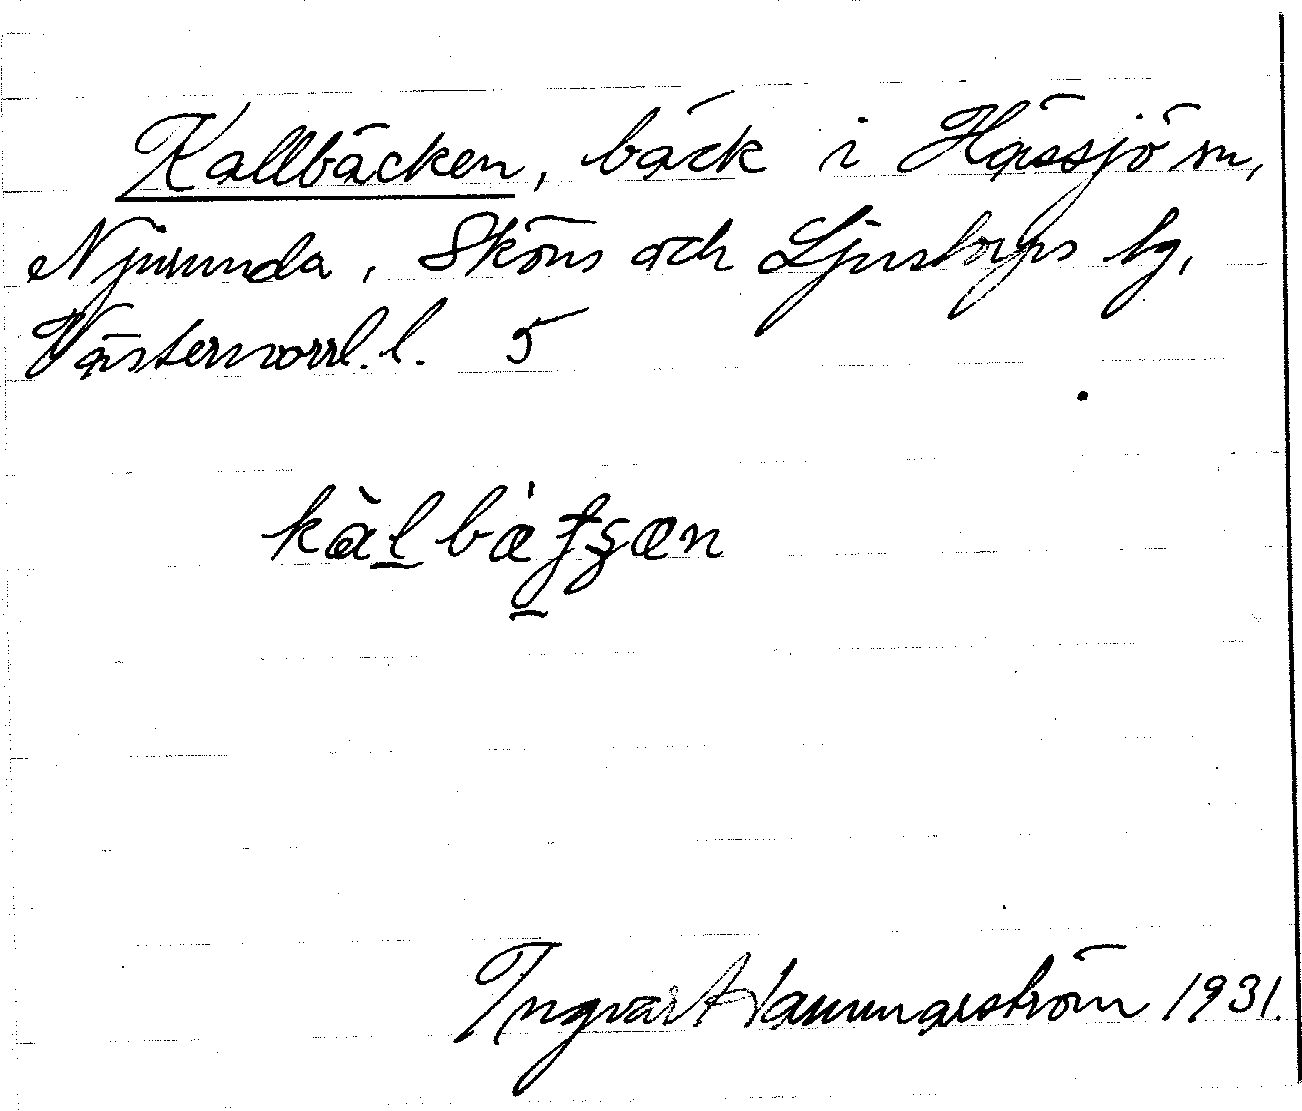 Kallbäcken, bäck i Hässjö sn,
Njurunda, Sköns och Ljustorps tg,
Västernorrl. l. 5
kàlbæ̀ƭʂæn
Ingvar Hammarström 1931.